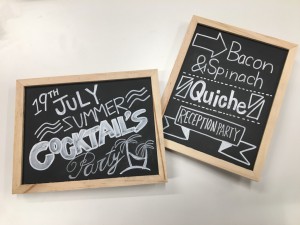 19TH JULY
SUMMER
COCKTAILS
Party
Bacon
& Spinach
Quiche
RECEPTION PARTY